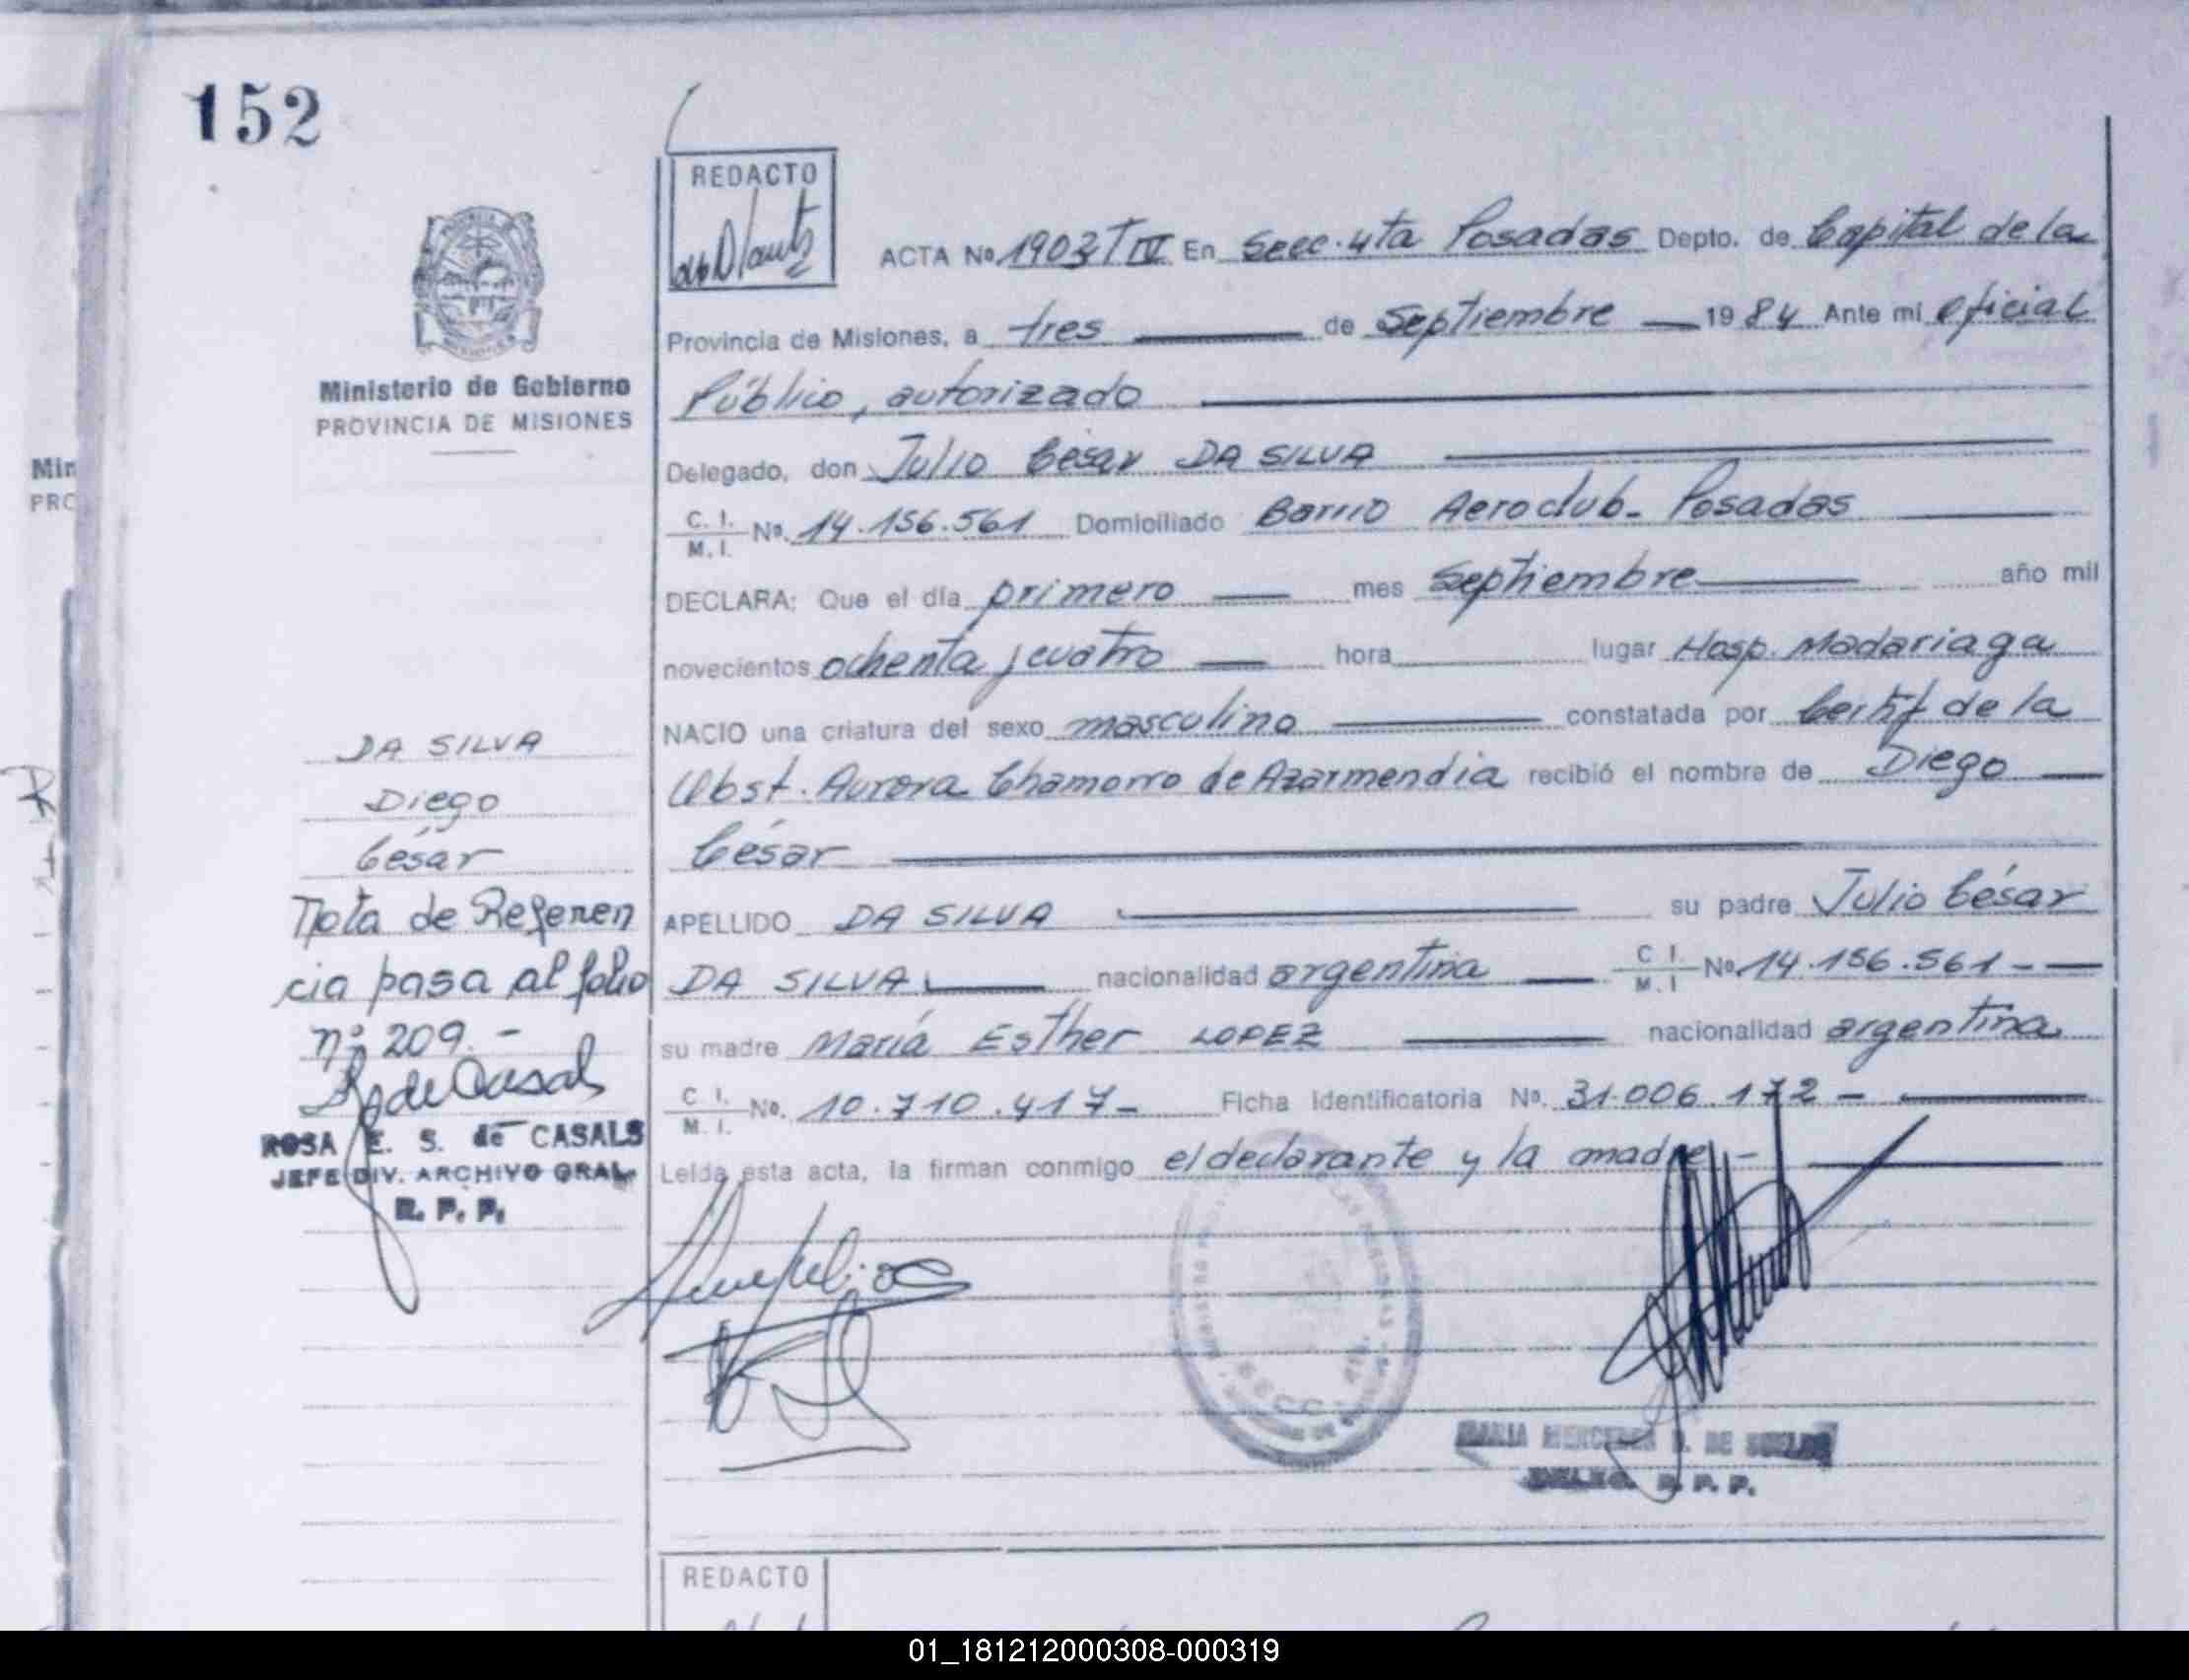 152
REDACTO
ACTA Nº 1903 T IV En Secc. 4ta Posadas Depto. de Capital de la
Provincia de Misiones, a tres de Septiembre 1984 Ante mi oficial
Público, autorizado
Ministerio de Gobierno
PROVINCIA DE MISIONES
Delegado, don Julio César DA SILVA
C. I. M. I. Nº. 14.156.561 Domiciliado Barrio Aeroclub - Posadas
DECLARA: Que el día primero mes Septiembre año mil
novecientos ochenta y cuatro hora lugar Hosp. Madariaga
NACIO una criatura del sexo masculino constatada por Certif de la
Obst. Aurora Chamorro de Azarmendia recibió el nombre de Diego
César
APELLIDO DA SILVA su padre Julio César
DA SILVA nacionalidad argentina C I. M. I Nº 14.156.561 -
su madre María Esther LOPEZ nacionalidad argentina
C I. M. I. Nº. 10.710.417- Ficha Identificatoria Nº. 31.006.172 -
Leída esta acta, la firman conmigo el declarante y la madre -
DA SILVA
Diego
César
Nota de Referen
cia pasa al folio
nº 209. -
ROSA E. S. de CASALS
JEFE DIV. ARCHIVO GRAL.
R. P. P.
MARIA MERCEDES DE
R. P. P.
REDACTO
Min
PRO
01_181212000308-000319